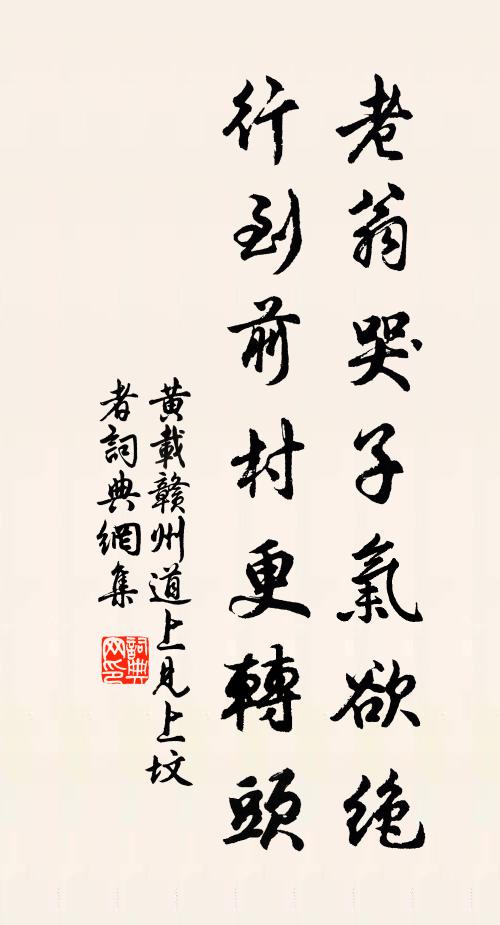 老翁哭子氣欲绝
行到前村更轉頭
黃載贛州道上見上坟
者詞典網集
詞典网印